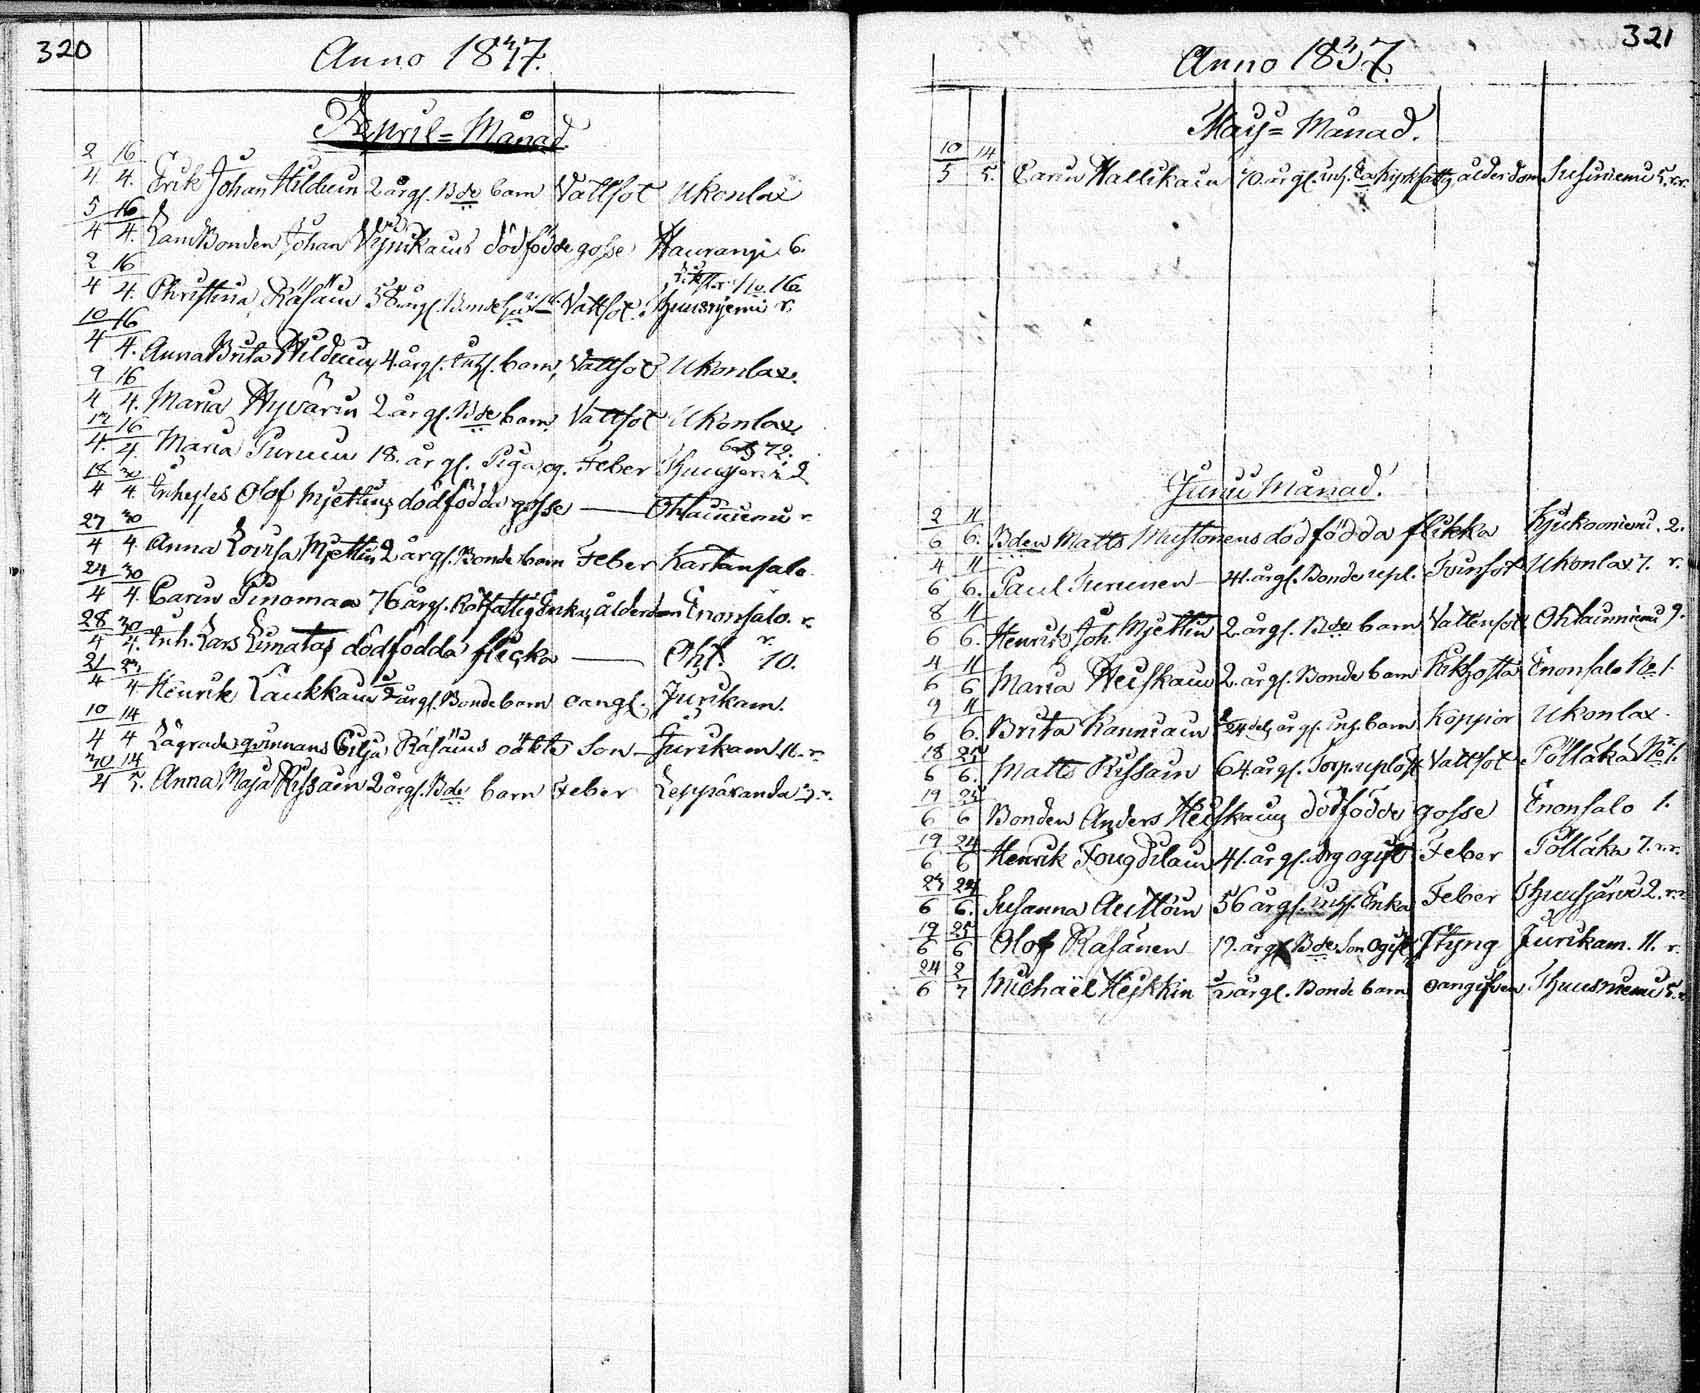 320
Anno 1837.
April=Månad.
2/4 16/4. Erik Johan Hilduin 2 årgl. Bde barn Vattsot Ukonlax
5/4 16/4. LandBonden Johan dödfödde gosse Haurangi 6.
2/4 16/4. Christina Räsäin 58 årgl. Vattsot. No. 16 Thuusnjemi r.
10/4 16/4. Anna Brita Hilduin 4 årgl. Inh. barn, Vattsot Ukonlax.
9/4 16/4. Maria Hyvärin 2 årgl. Bde barn Vattsot Ukonlax.
16/4. Maria Turuin 18. årgl. Piga og. Feber 2
18/4 30/4. Inhyses Olof Mjettins dödfödda gosse — Ohtainiemi r.
27/4 30/4. Anna Lovisa Mjettin 2 årgl. Bonde barn Feber Kartansalo
24/4 30/4. Carin Pinomaa 76 årgl. Rotfattig Enka, ålderdom Enonsalo. r.
28/4 30/4. Inh. Lars Limatas dödfödda flicka — Oht. r. 10.
21/4 Henrik Laukkain ½ årgl. Bonde barn oangf. Jurikam.
10/4 14/4 Lägrade qvinnans Cilja Räsäins oäkta Son — Jurikam. 11. r.
30/4 14/5. Anna Maja Rissain 2 årgl. Bde barn Feber Leppäranda 2. r.
321
Anno 1837.
Maij=Månad.
10/5 14/5. Carin Hallikain 70. årgl. inh. Enka kyrkfattig ålderdom Susiniemi 5. r.r.
Junii Månad.
2/6 11/6. Bden Matts Mustonens dödfödda flikka Kjukooniemi. 2.
4/6 11/6. Paul Turunen 41. årgl. Bonde upl. Tvinsot Ukonlax 7. r.
8/6 11/6. Henrik Joh. Mjettin 2 årgl. Bde barn Vattensot Ohtainniemi 9.
4/6 11/6 Maria Heiskain 2. årgl. Bonde barn Kikhosta Enonsalo No 1.
9/6 11/6. Brita Kanniain årgl. inh. barn. Koppior Ukonlax.
18/6 24/6. Matts Rissain 64 årgl. Torp. Vattsot Pölläkä No 1.
19/6 24/6 Bonden Anders Heiskains dödfödde gosse Enonsalo 1.
19/6 24/6 Henrik Fougdilain 41. årgl. drg ogift Feber Pölläkä 7. r.r.
23/6 24/6. Susanna Auttoin 56 årgl. inh. Enka Feber Thuusjärvi 2. r.r.
19/6 25/6 Olof Räsänen 17. årgl. Bde Son ogift Styng Jurikam. 11. r.
24/6 2/7 Michaël Heikkin ½ årgl. Bonde barn oangifven Thuusniemi 5. r.